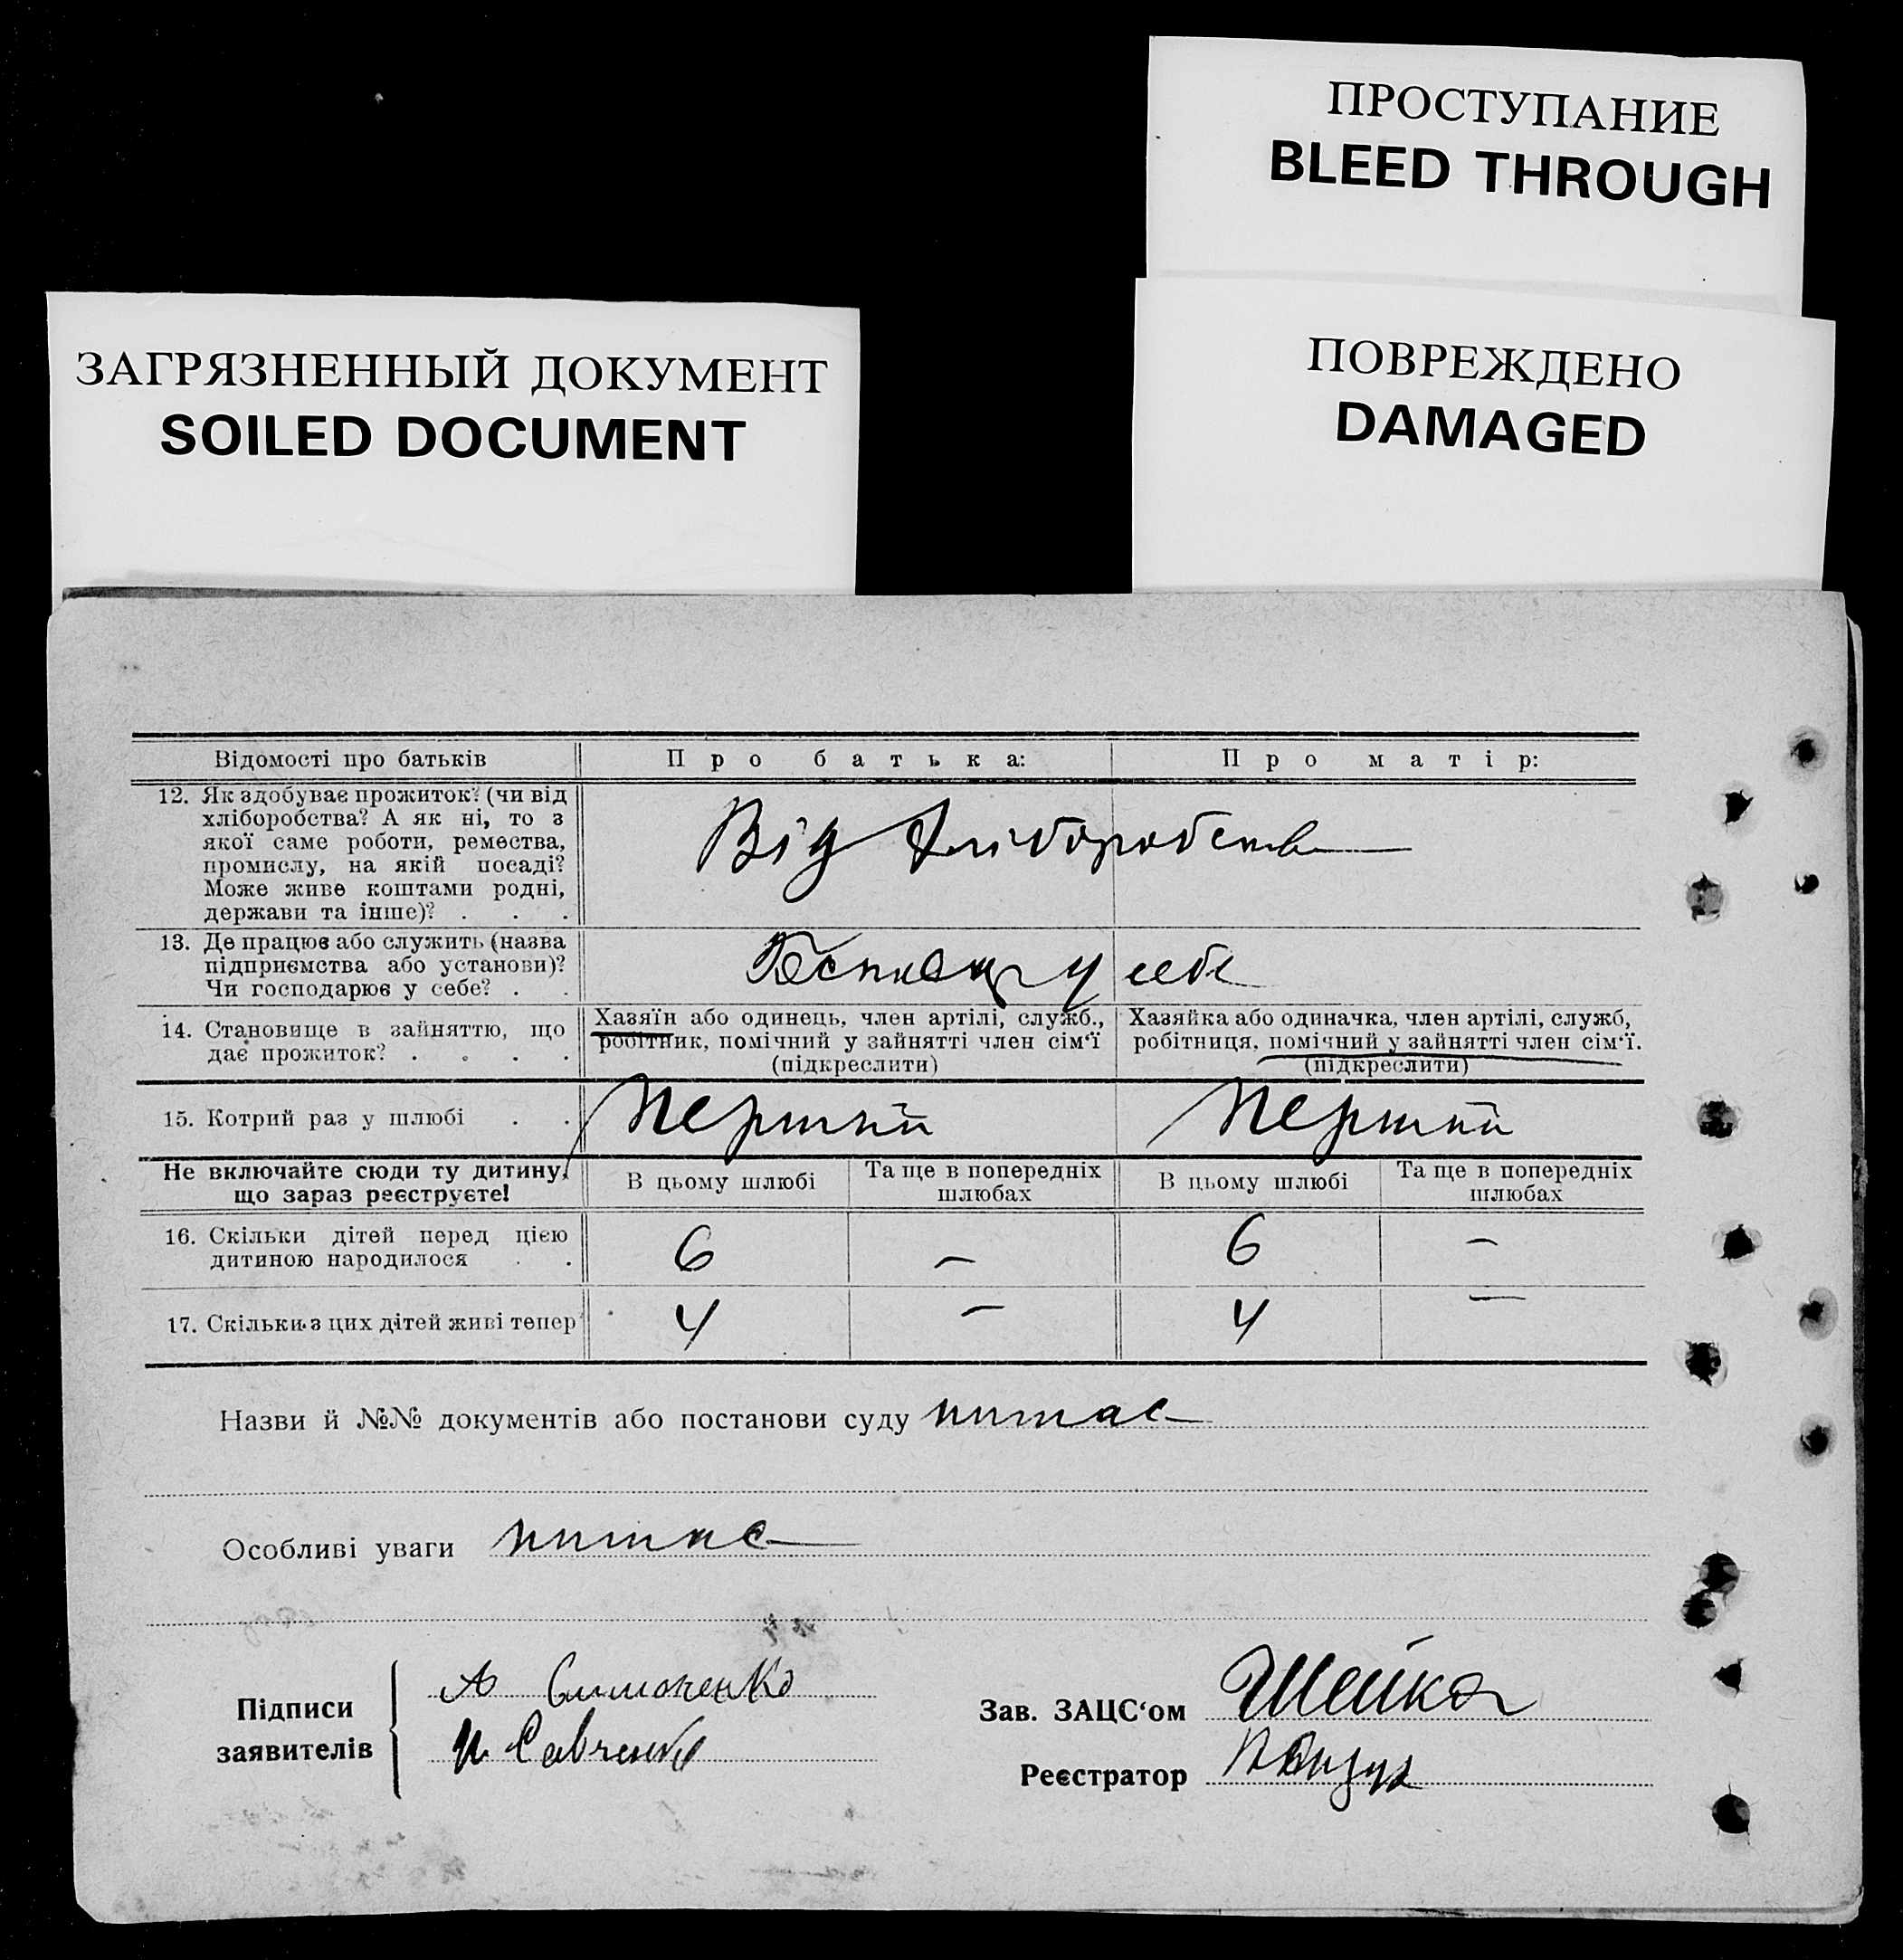 ПРОСТУПАНИЕ
BLEED THROUGH
ПОВРЕЖДЕНО
DAMAGED
ЗАГРЯЗНЕННЫЙ ДОКУМЕНТ
SOILED DOCUMENT
Відомості про батьків
Про батька:
Про матір:
12. Як здобуває прожиток? (чи від
хліборобства? А як ні, то з
якої саме роботи, ремества,
промислу, на якій посаді?
Може живе коштами родні,
держави та інше)? . . .
Від хліборобства
13. Де працює або служить (назва
підприємства або установи)?
Чи господарює у себе? . .
у себе
14. Становище в зайняттю, що
дає прожиток? . . . .
Хазяїн або одинець, член артілі, служб.,
робітник, помічний у зайнятті член сім‘ї
(підкреслити)
Хазяйка або одиначка, член артілі, служб,
робітниця, помічний у зайнятті член сім‘ї.
(підкреслити)
15. Котрий раз у шлюбі . .
Перший
Перший
Не включайте сюди ту дитину,
що зараз реєструєте!
В цьому шлюбі
Та ще в попередніх
шлюбах
В цьому шлюбі
Та ще в попередніх
шлюбах
16. Скільки дітей перед цією
дитиною народилося . .
6
—
6
—
17. Скільки з цих дітей живі тепер
4
—
4
—
Назви й №№ документів або постанови суду немає
Особливі уваги немає
Підписи
заявителів
А Симоненко
И Савченко
Зав. ЗАЦС‘ом Шейко
Реєстратор